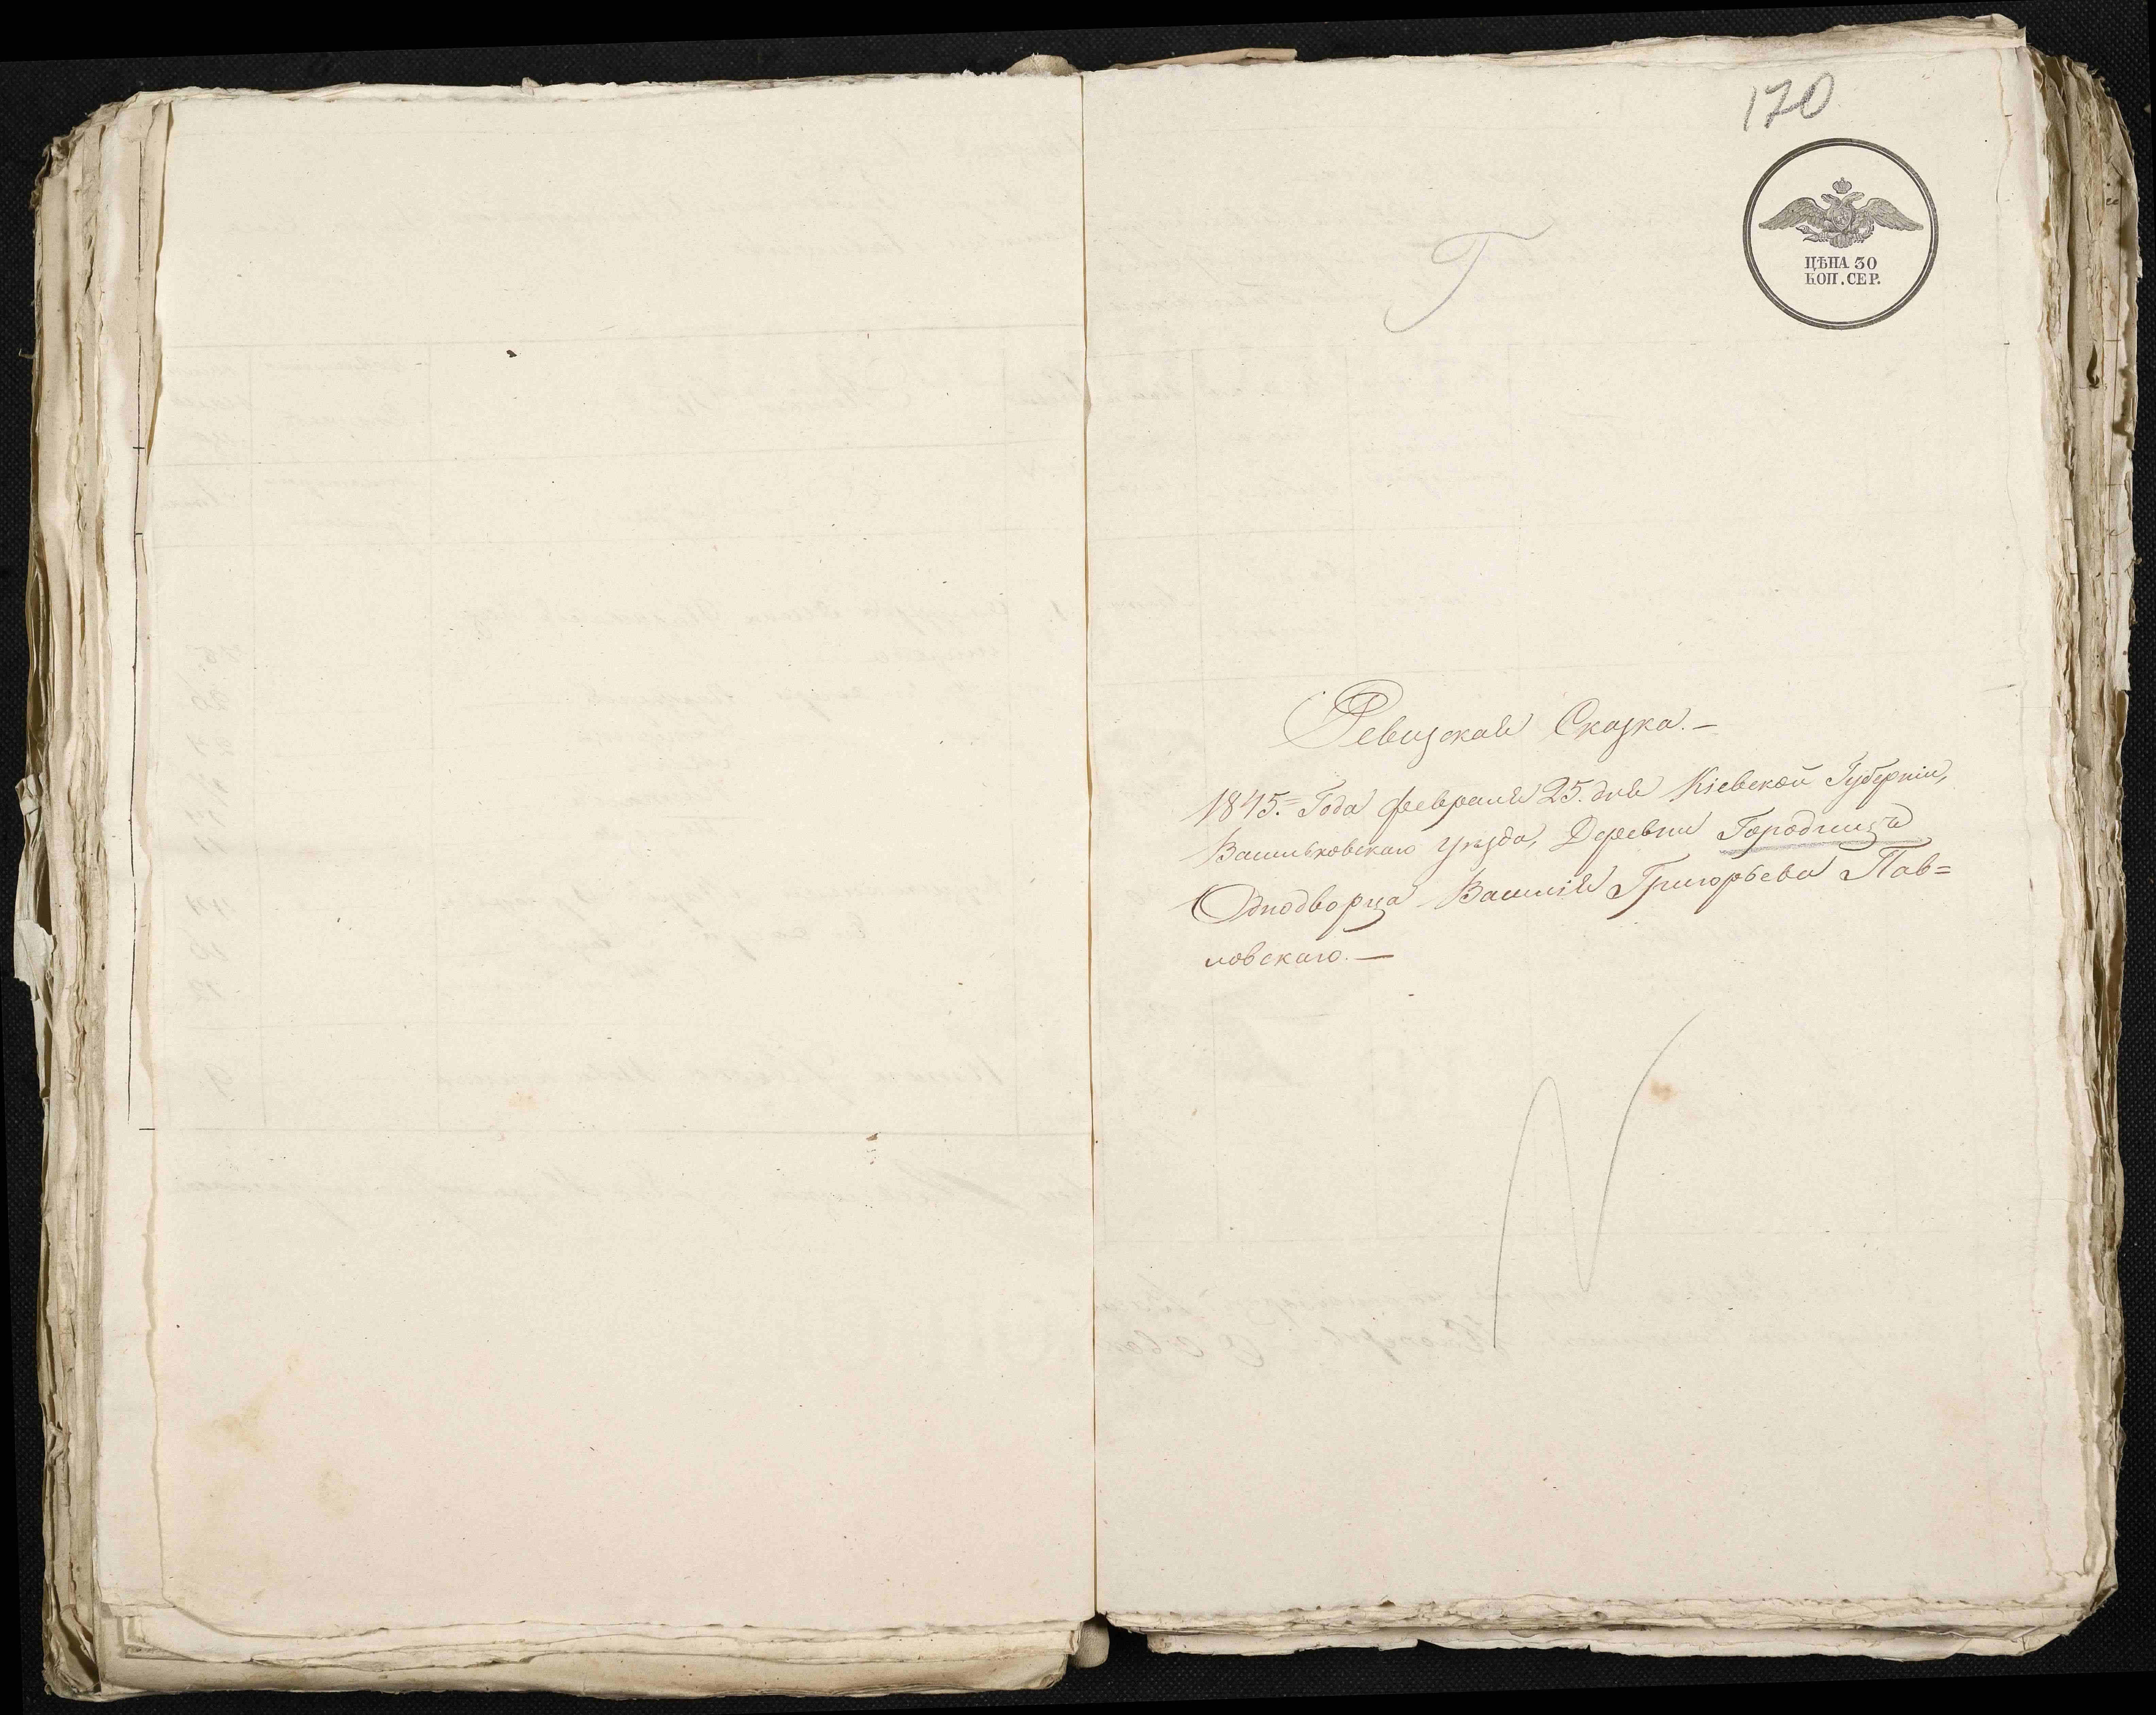 170
Г
ЦѢНА 30
КОП. СЕР.
Ревизская Сказка. —
1845.= Года февраля 25. дня Кіевской Губерніи,
Васильковскаго уѣзда, Деревни Городища
Однодворца Василія Григорьева Пав=
ловскаго. —